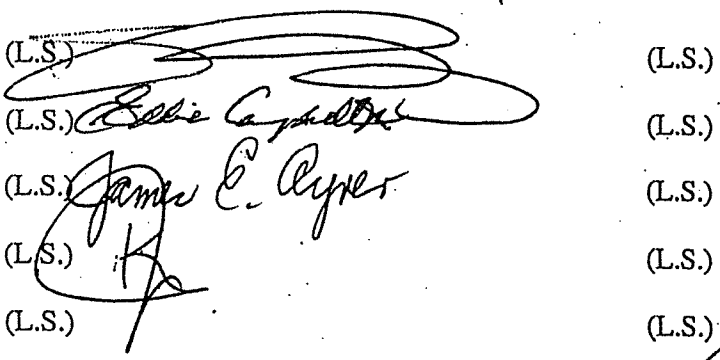 (L.S.) (L.S.)
(L.S.) Eddie (L.S.)
(L.S.) James E. Ayres (L.S.)
(L.S.) (L.S.)
(L.S.) (L.S.)